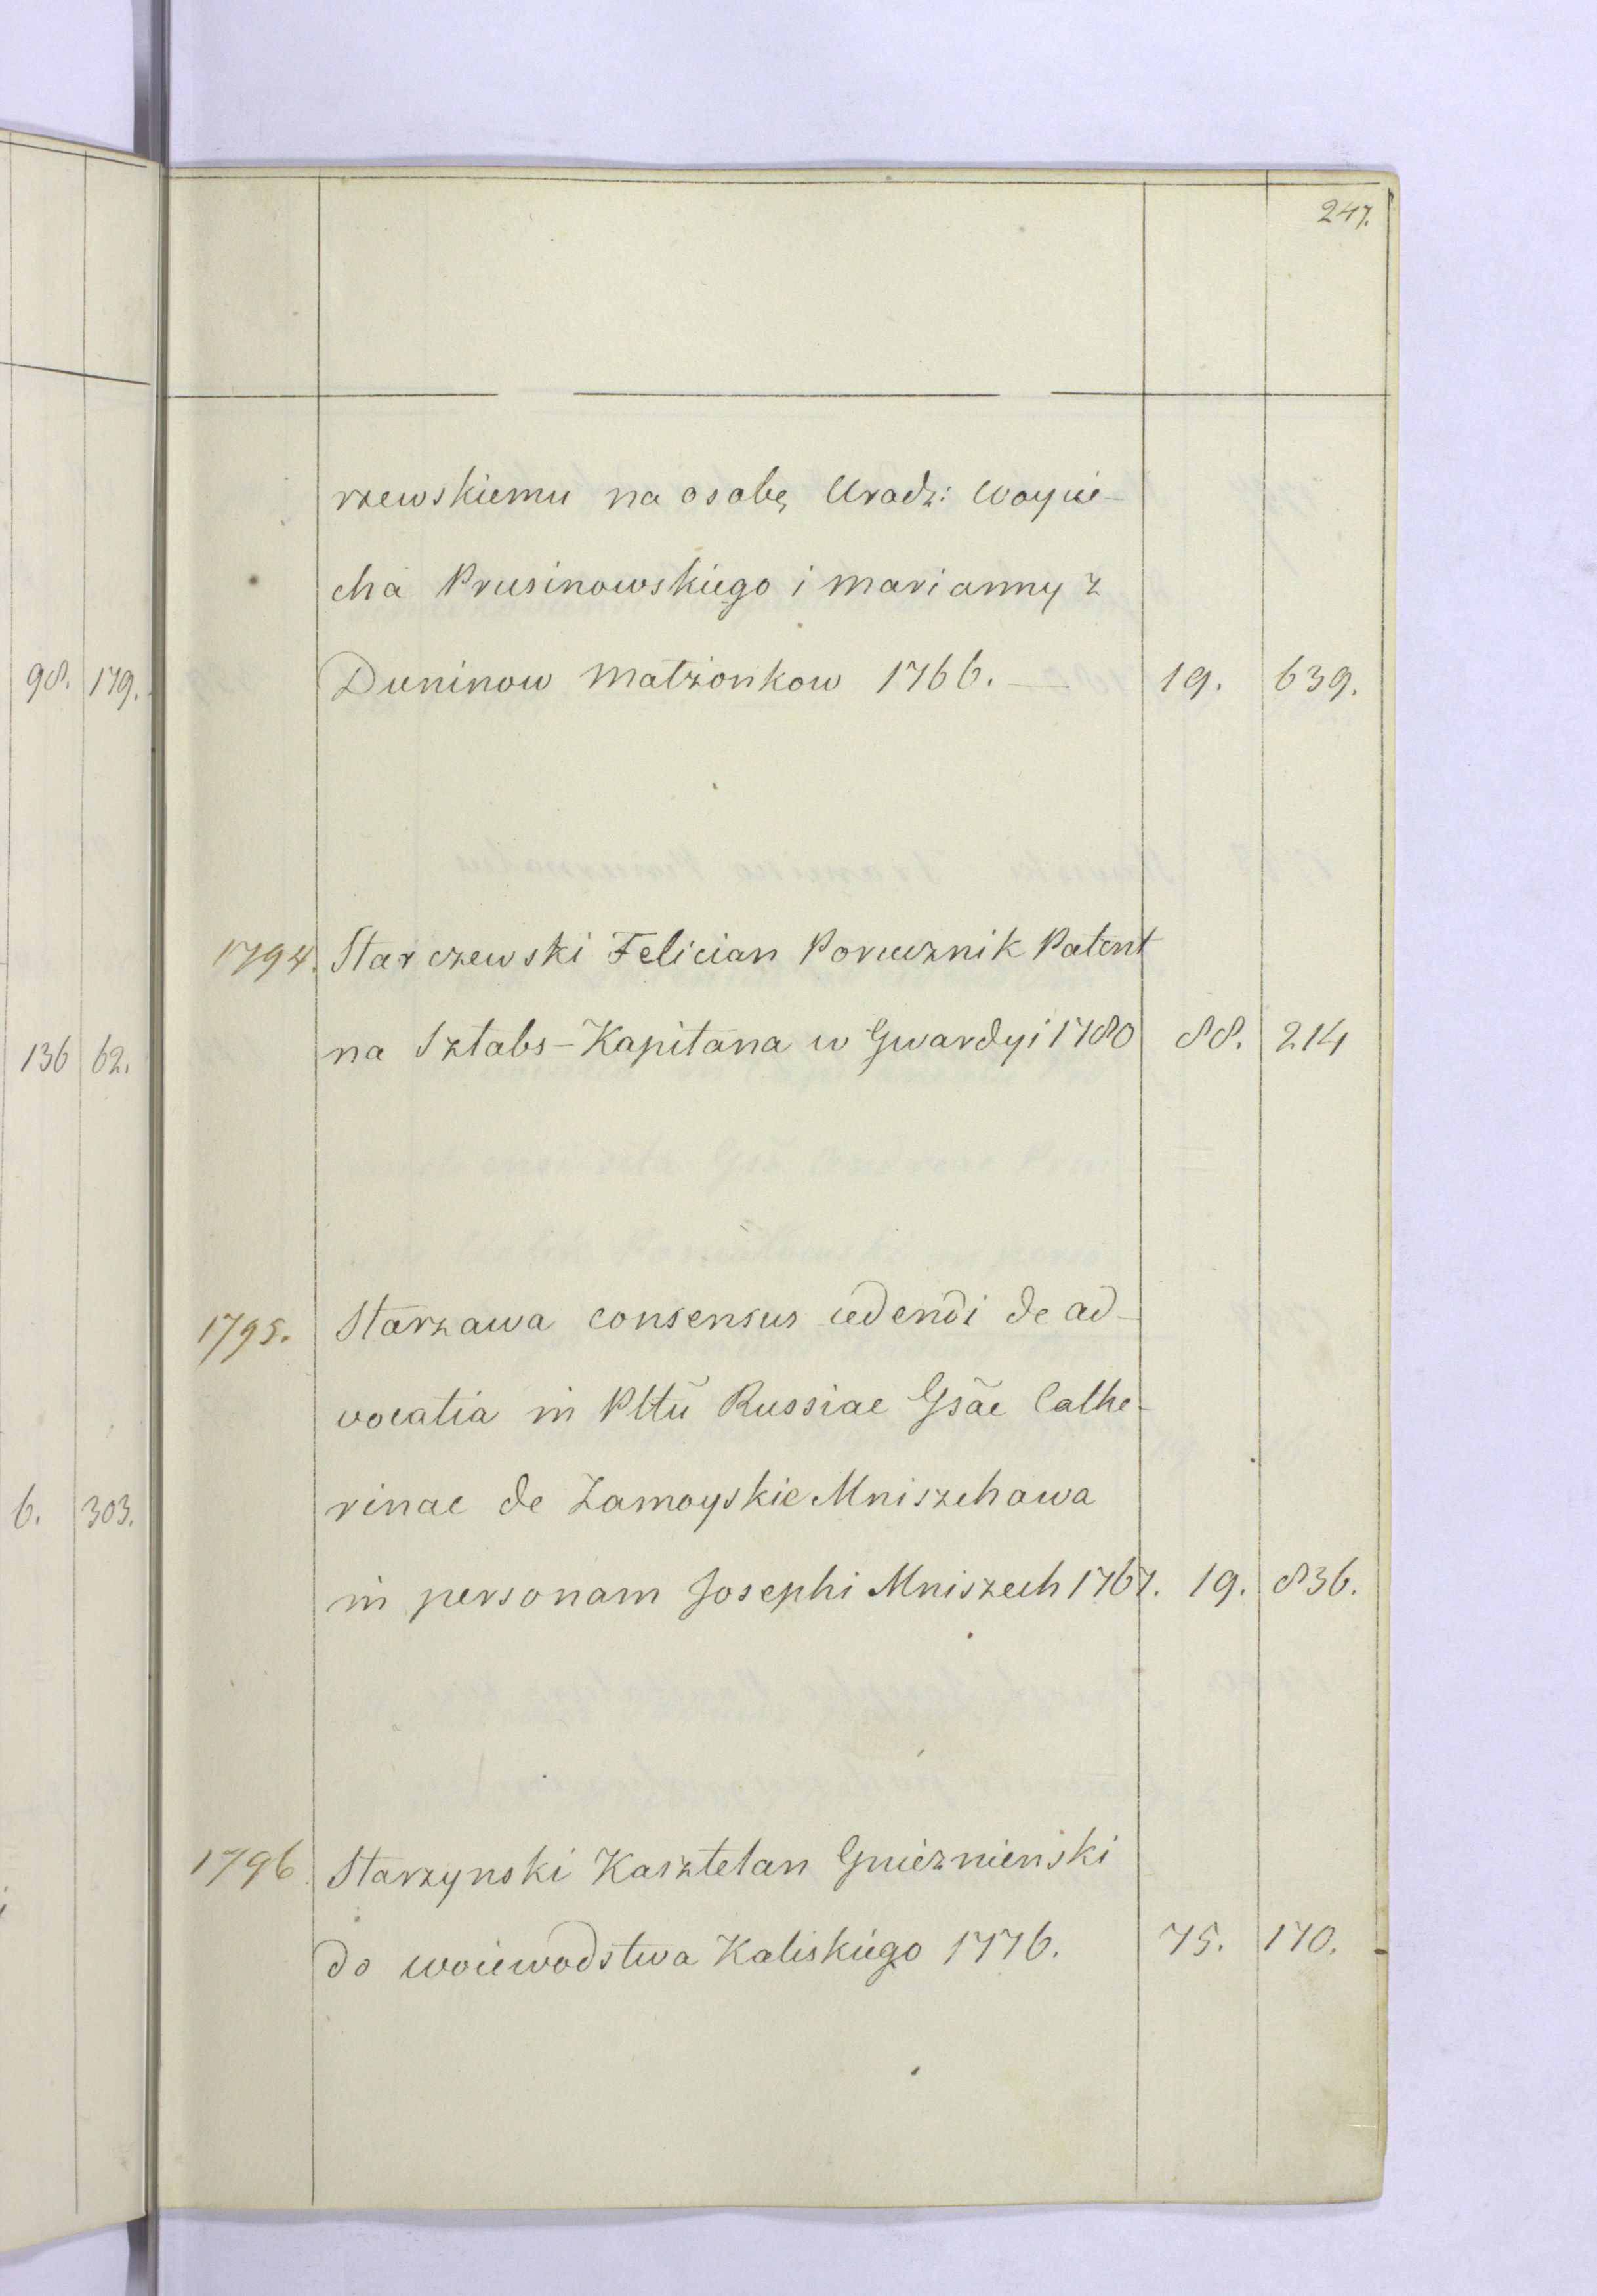 247.
98. 179.
136 62.
6. 303.
rzewskiemu na osobę Urodz: Woycie-
cha Prusinowskiego i Marianny z
Duninow Małżonkow 1766. — 19. 639.
1794. Starczewski Felician Porucznik Patent
na Sztabs-Kapitana w Gwardyi 1780 88. 214
1795. Starzawa consensus cedendi de ad-
vocatia in Pltũ Russiae Gsãe Cathe-
rinae de Zamoyskie Mniszchowa
in personam Josephi Mniszech 1767. 19. 836.
1796 Starzynski Kasztelan Gnieznienski
do woiewodstwa Kaliskiego 1776. 75. 170.